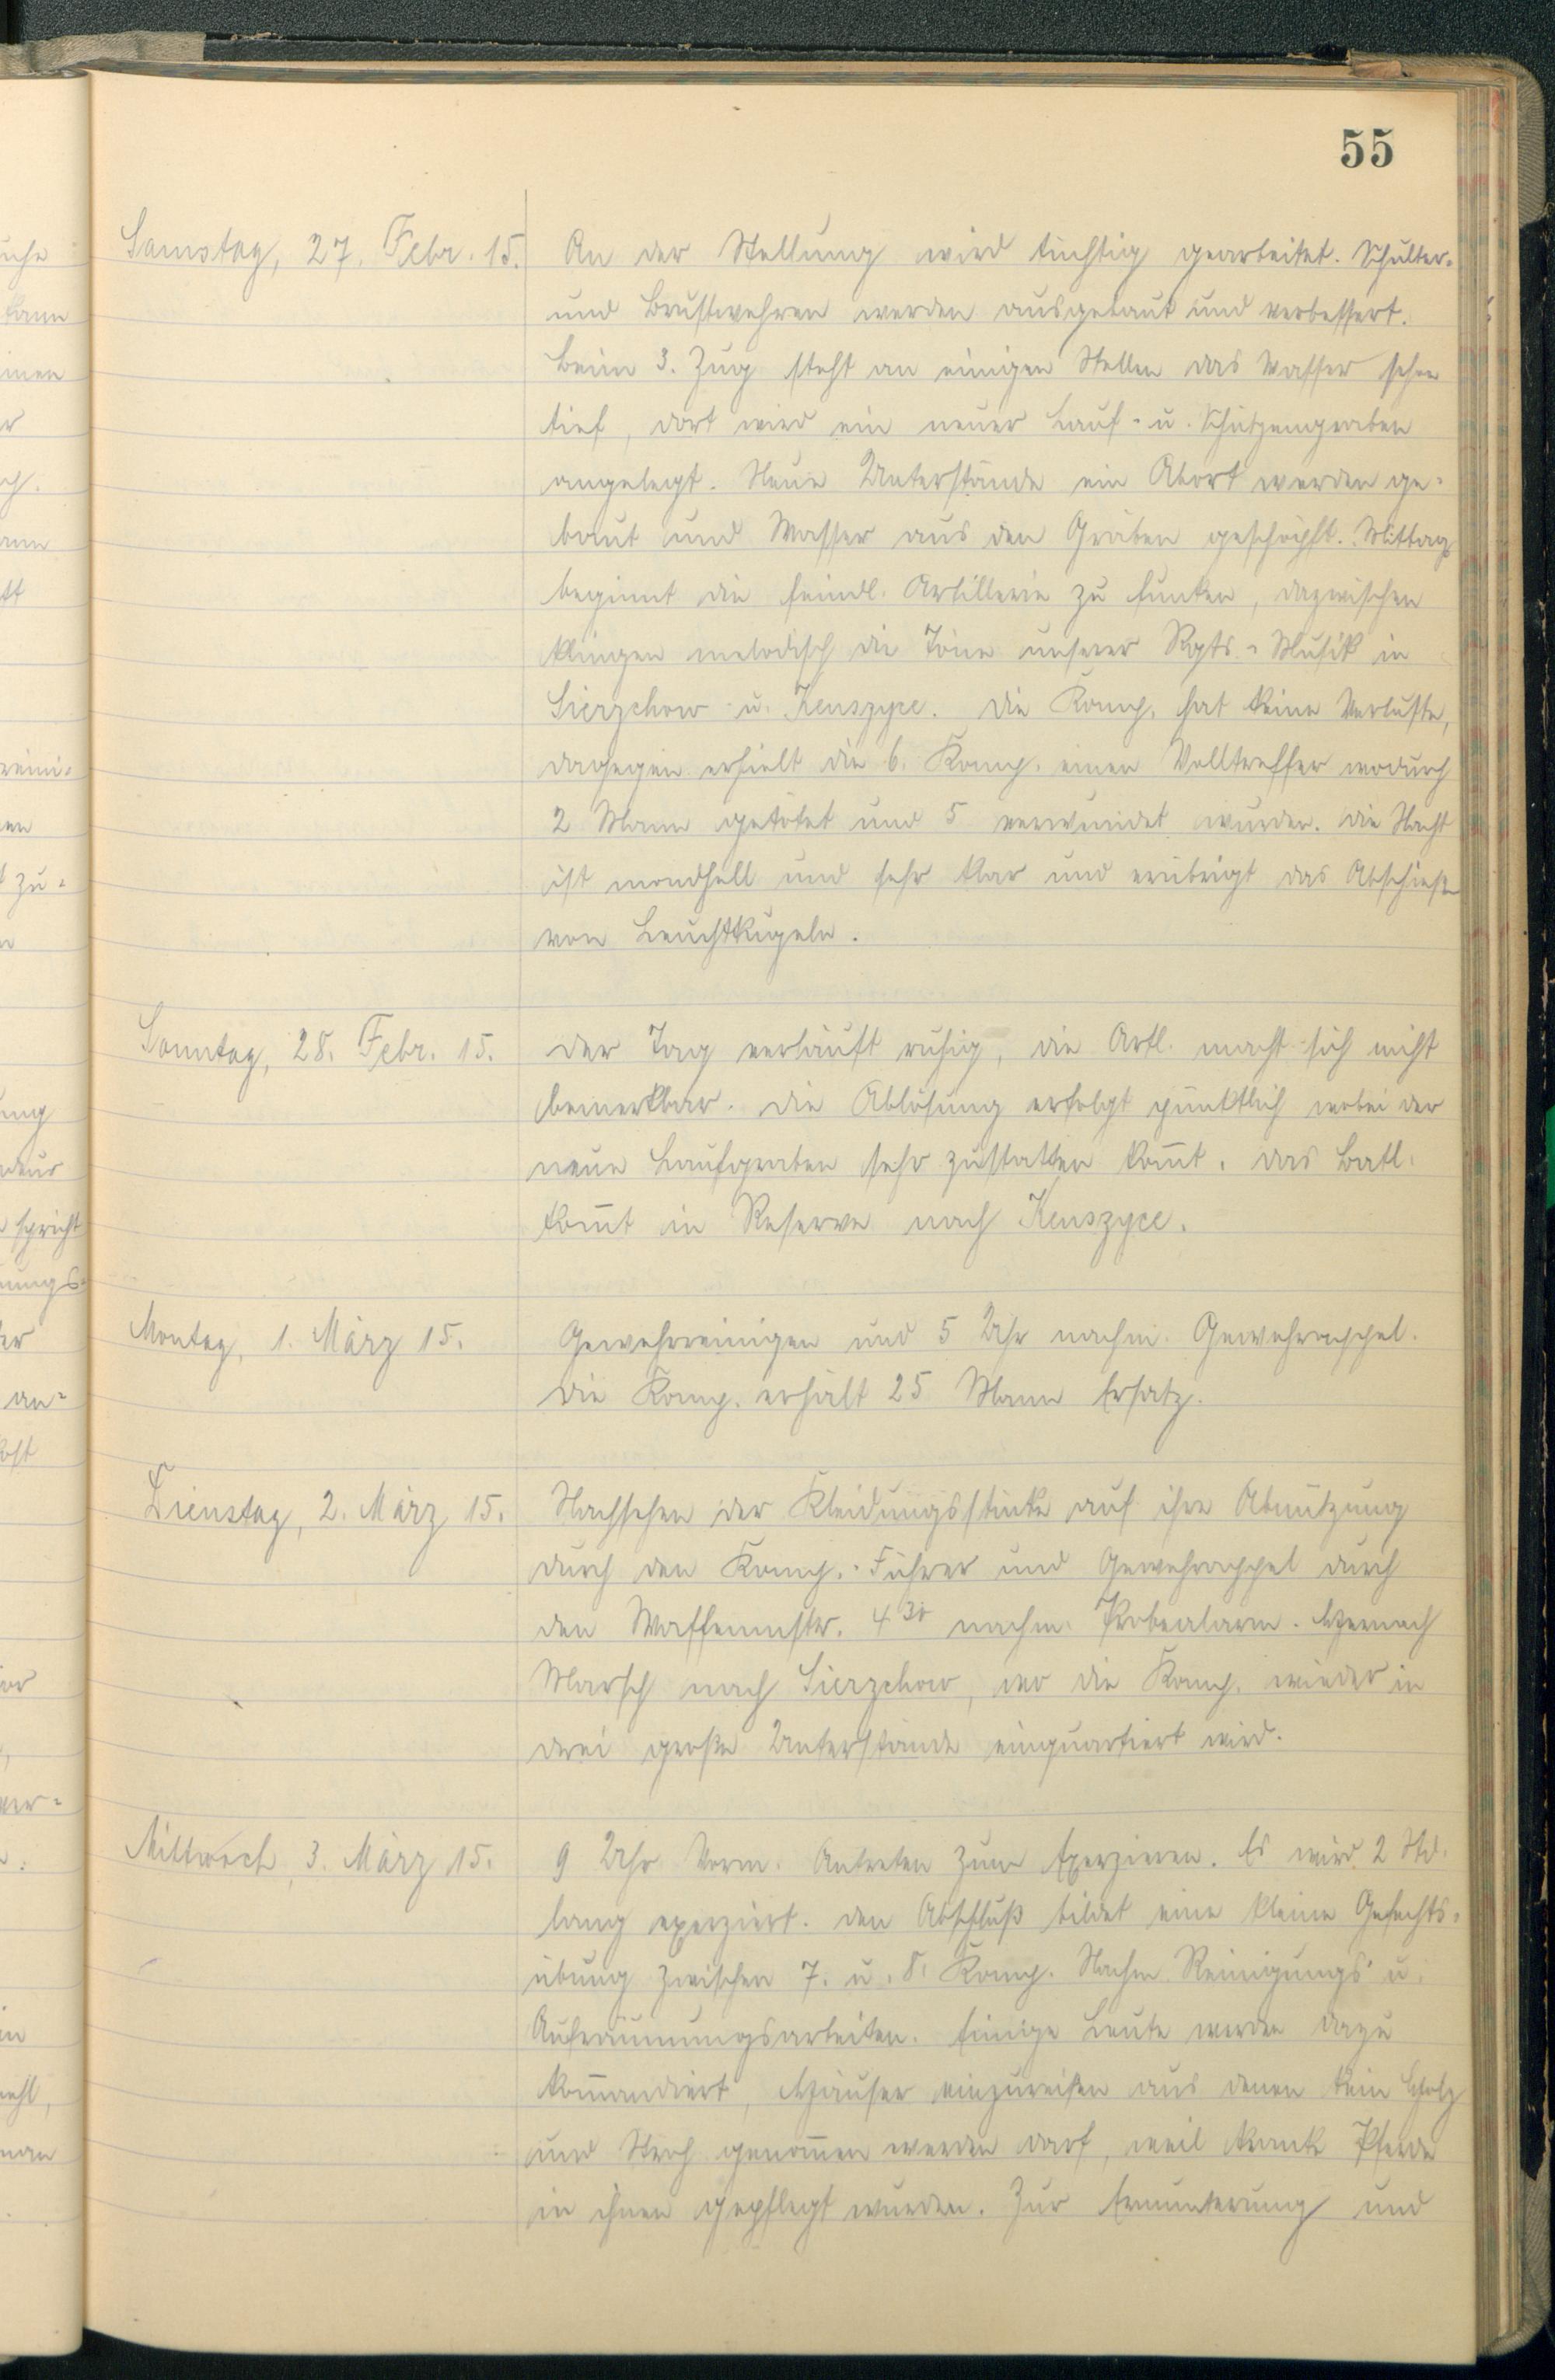 55
Samstag, 27. Febr. 15. An der Stellung wird tüchtig gearbeitet. Schulter-
und Brustwehren werden ausgebaut und verbessert.
Beim 3. Zug steht an einigen Stellen das Wasser sehr
tief, dort wird ein neuer Lauf- u. Schützengraben
angelegt. Neue Unterstände ein Abort werden ge-
baut und Wasser aus den Gräben geschöpft. Mittag
beginnt die feindl. Artillerie zu funken, dazwischen
klingen melodisch die Töne unserer Rgts.-Musik in
Sierzchow u. Kenszyce. Die Komp. hat keine Verluste,
dagegen erhielt die 6. Komp. einen Volltreffer wodurch
2 Mann getötet und 5 verwundet wurden. Die Nacht
ist mondhell und sehr klar und erübrigt das Abschießen
von Leuchtkugeln.
Sonntag, 28. Febr. 15. Der Tag verläuft ruhig, die Artl. macht sich nicht
bemerkbar. Die Ablösung erfolgt pünktlich wobei der
neue Laufgraben sehr zustatten kom̅t. Das Batl.
kom̅t in Reserve nach Kenszyce.
Montag, 1. März 15. Gewehrreinigen und 5 Uhr nachm. Gewehrappel.
Die Komp. erhält 25 Mann Ersatz.
Dienstag, 2. März 15. Nachsehen der Kleidungsstücke auf ihre Abnützung
durch den Komp.-Führer und Gewehrappel durch
den Waffenmstr. 4 30 nachm. Probealarm. Hernach
Marsch nach Sierzchow, wo die Komp. wieder in
drei große Unterstände einquartiert wird.
Mittwoch, 3. März 15. 9 Uhr Vorm. Antreten zum Exerzieren. Es wird 2 Std.
lang exerziert. Den Abschluß bildet eine kleine Gefechts-
übung zwischen 7. u. 8. Komp. Nachm. Reinigungs- u.
Aufräumungsarbeiten. Einige Leute werden dazu
kom̅andiert, Häuser einzureißen aus denen kein Holz
und Stroh genom̅en werden darf, weil kranke Pferde
in ihnen gepflegt wurden. Zur Ermunterung und